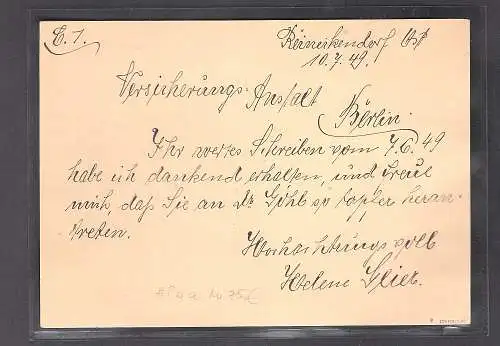 E. 1.
Reinickendorf Ost
10.7.49.
Versicherungs-Anstalt
Berlin.
Ihr wertes Schreiben vom 7.6.49
habe ich dankend erhalten, und freue
mich, daß Sie an Dr. so tapfer heran-
treten.
Hochachtungsvoll
Helene